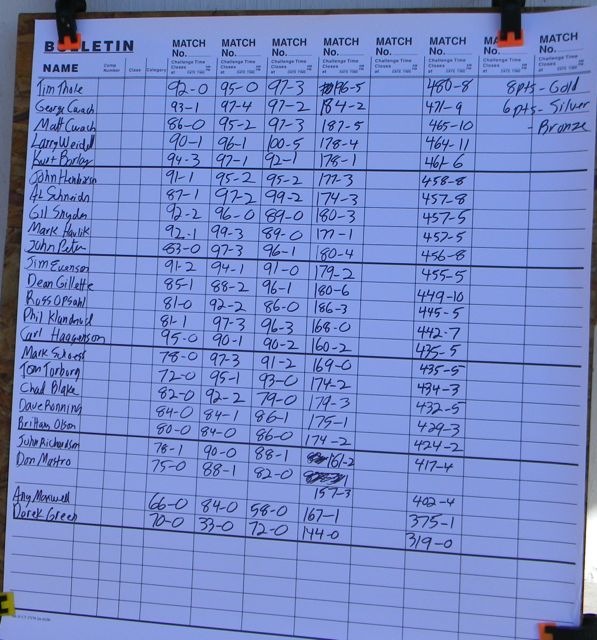 BULLETIN MATCH No. MATCH No. MATCH No. MATCH No. MATCH No. MATCH No. MATCH No. MATCH No.
NAME Comp Number Class Category Challenge Time Closes at Challenge Time Closes at Challenge Time Closes at Challenge Time Closes at Challenge Time Closes at Challenge Time Closes at Challenge Time Closes at Challenge Time Closes at
Tim Thole 92-0 95-0 97-3 196-5 480-8 8pts- Gold
George Cwach 93-1 97-4 97-2 184-2 471-9 6pts- Silver
Matt Cwach 86-0 95-2 97-3 187-5 465-10 - Bronze
Larry Weidell 90-1 96-1 100-5 178-4 464-11
Kurt Borlaug 94-3 97-1 92-1 178-1 461-6
John Henderson 91-1 95-2 95-2 177-3 458-8
AL Schneider 87-1 97-2 99-2 174-3 457-8
Gil Snyder 92-2 96-0 89-0 180-3 457-5
Mark Havlik 92-1 99-3 89-0 177-1 457-5
John Peter 83-0 97-3 96-1 180-4 456-8
Jim Evenson 91-2 94-1 91-0 179-2 455-5
Dean Gillette 85-1 88-2 96-1 180-6 449-10
Ross Opsahl 81-0 92-2 86-0 186-3 445-5
Phil Klandrud 81-1 97-3 96-3 168-0 442-7
Carl Haggenson 95-0 90-1 90-2 160-2 435-5
Mark 78-0 97-3 91-2 169-0 435-5
Tom Torborg 72-0 95-1 93-0 174-2 434-3
Chad Blake 82-0 92-2 79-0 179-3 432-5
Dave Ronning 84-0 84-1 86-1 175-1 429-3
Brittany Olson 80-0 84-0 86-0 174-2 424-2
John Richardson 78-1 90-0 88-1 161-2 417-4
Don Mastro 75-0 88-1 82-0
157-3 402-4
Any Maxwell 66-0 84-0 58-0 167-1 375-1
Derek Green 70-0 33-0 72-0 144-0 319-0